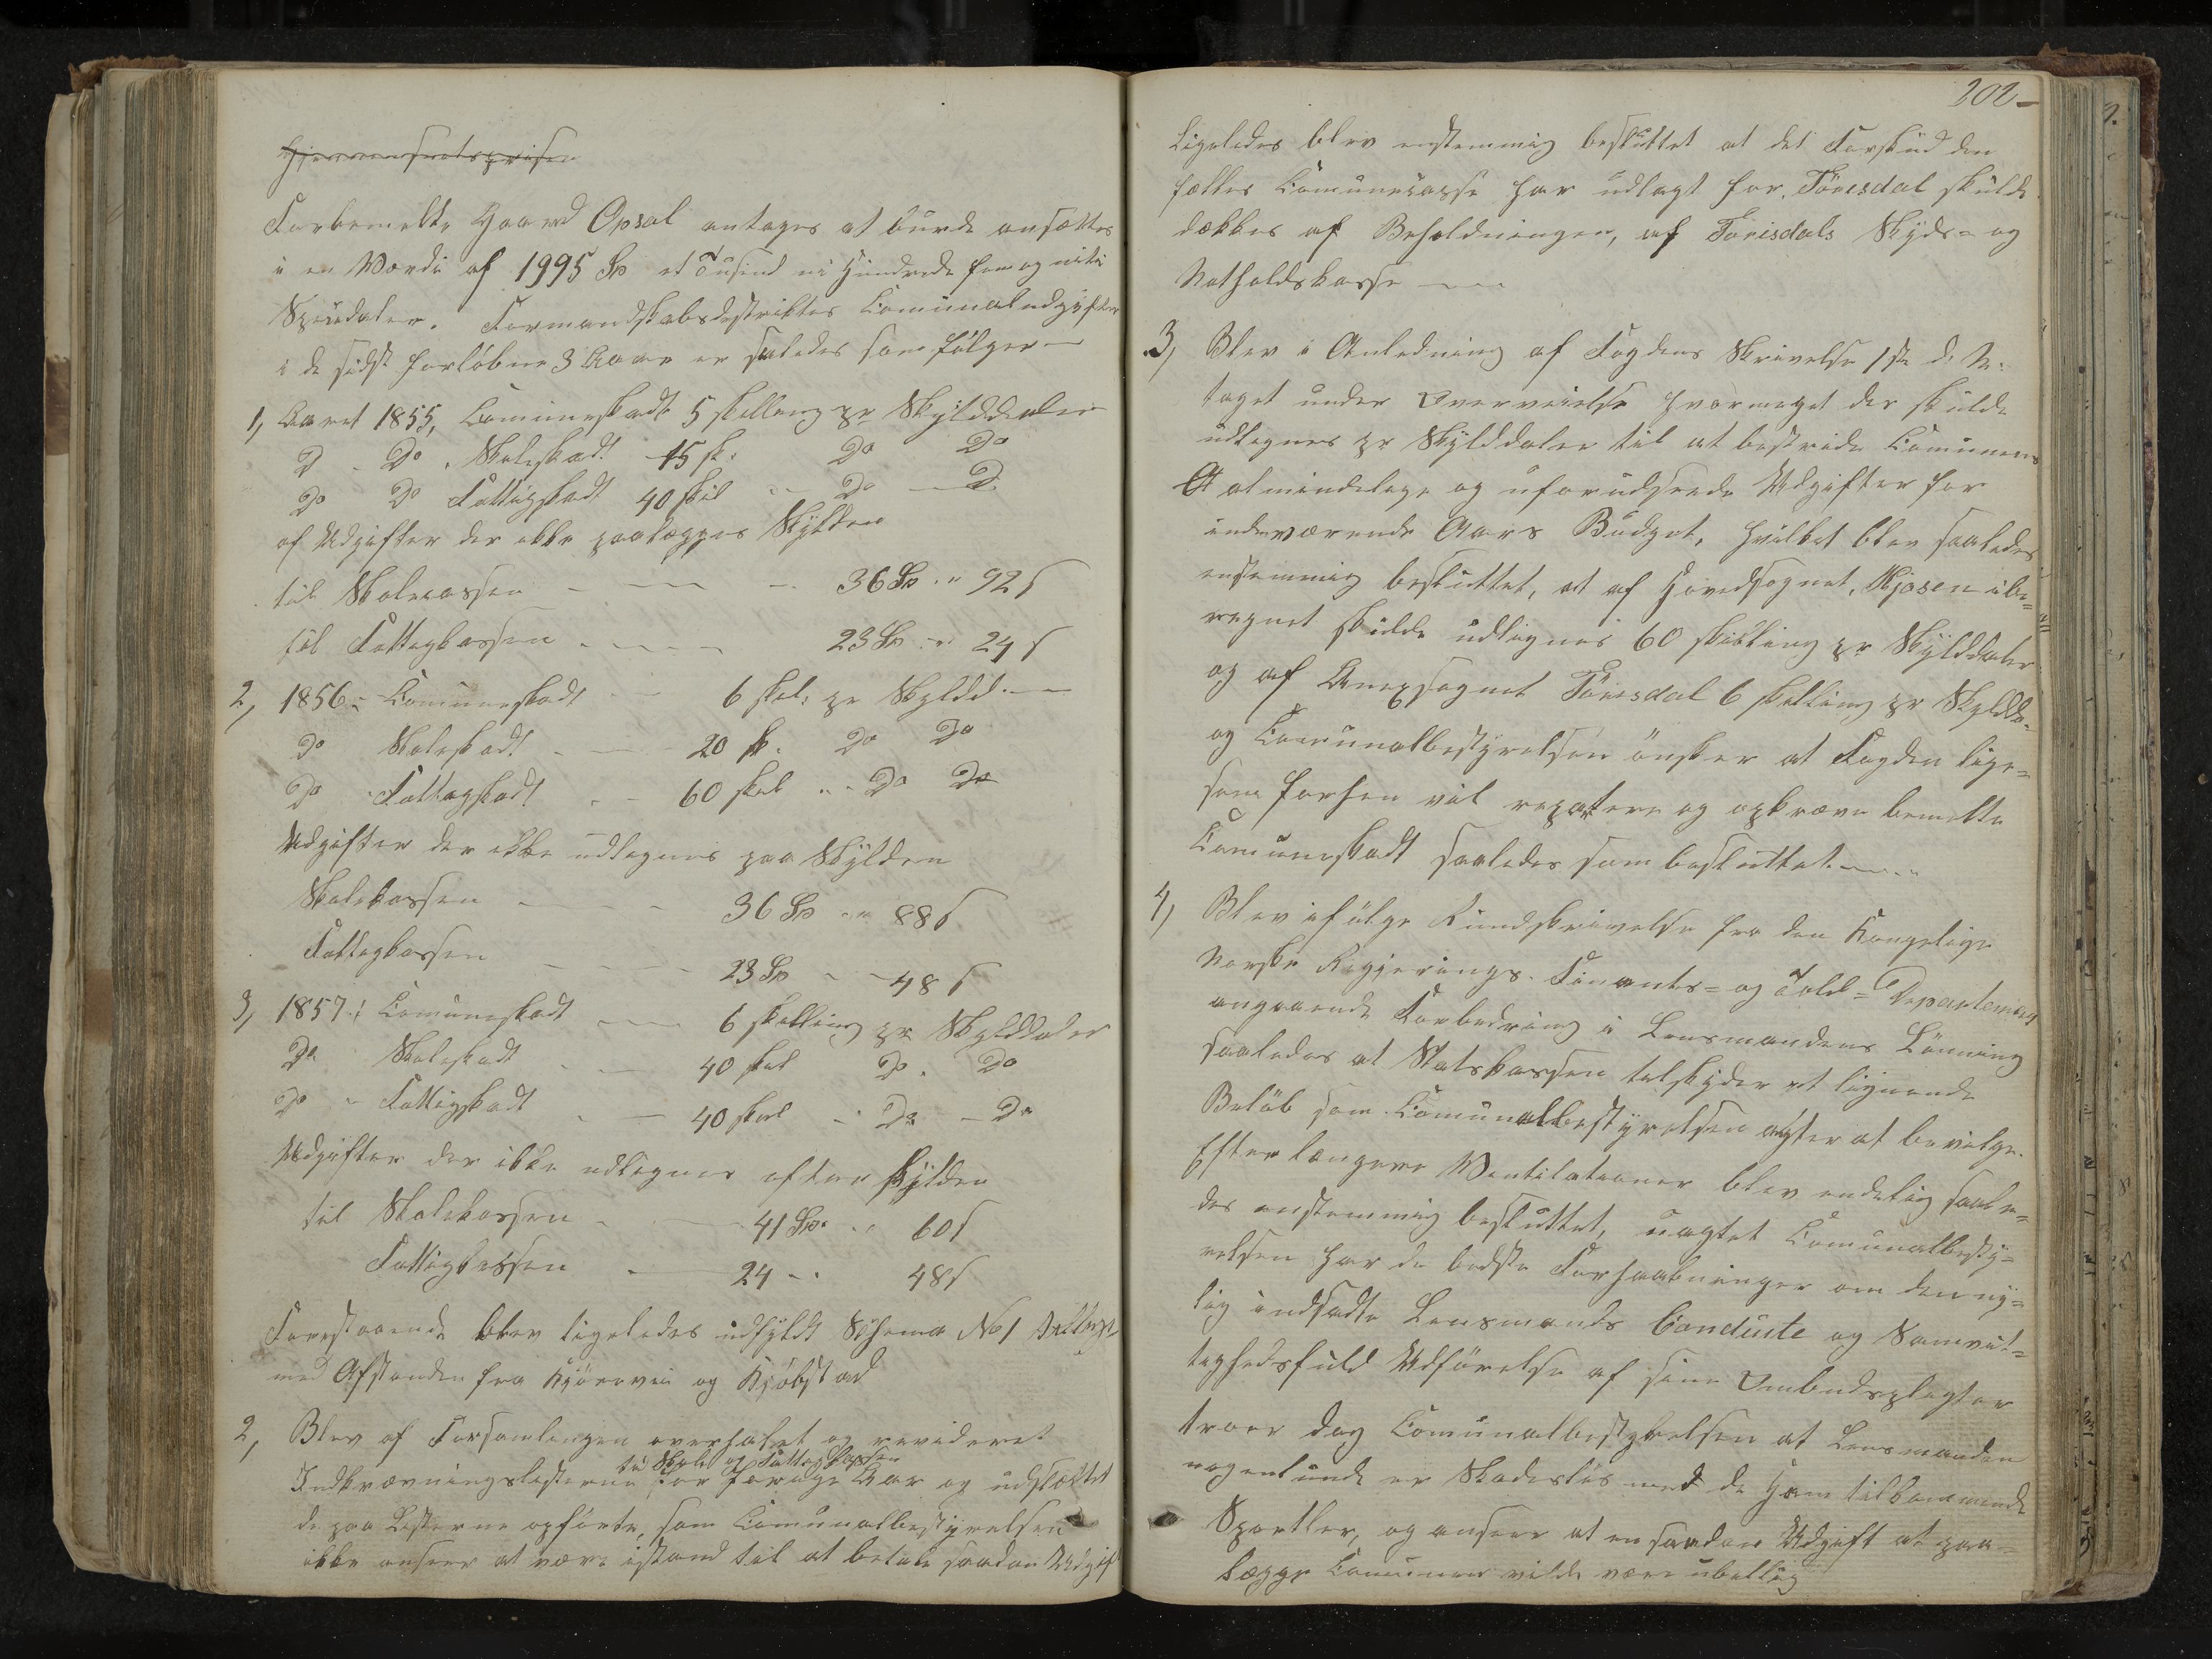 Gjennemsnitsprisen
Forbemeldte Gaard Opsal antages at burde ansættes
i en Værdi af 1995 Sp et Tusind ni Hundrede fem og niti
Speciedaler. Formandskabsdistriktets Comunaludgifter
i de sidst forløbne 3 Aar er saaledes som følger
1, Aaret 1855, Comuneskadt 5 skilling pr Skylddaler
D - Do. Skoleskadt 15 sk: Do Do
Do Do Fattigskadt 40 skil - Do - D
af Udgifter der ikke paalægges Skylden
til Skolecassen - 36 Sp " 92 s
til Fattigkassen - 23 Sp " 24 s
2, 1856: Comuneskadt - 6 skil: pr Skyldd.
Do Skoleskadt - 20 sk. Do Do
Do Fattigskadt - 60 skil " Do Do
Udgifter der ikke udlignes paa Skylden
Skolekassen - 36 Sp " 88 s
Fattigkassen - 23 Sp - 48 s
3, 1857: Comuneskadt - 6 skilling pr Skylddaler
Do Skoleskadt - 40 skil Do. Do
Do - Fattigskadt - 40 skil - Do - Do
Udgifter der ikke udlignes efter skylden
til Skolekassen - 41 Sp " 60 s
Fattigkassen - 24 - 48 s
Forestaaende blev ligeledes udfyldt Schema No 1
med Afstanden fra Kjørevei og Kjøbstad
2, Blev af Forsamlingen overhalet og revideret
til Skole og Fattigkassen
Indkrævningslisterne for forrige Aar og udslættet
de paa Listerne opførte, som Comunalbestyrelsen
ikke anseer at være istand til at betale saadan Udgift
202-
Ligeledes blev enstemmig besluttet at det Forskud den
fælles Comunecasse har udlagt for Törisdal skulde
dækkes af Beholdningen, af Törisdals Skyds= og
Natholdskasse
3, Blev i Anledning af Fogdens Skrivelse 1ste d. M.
taget under Overveielse hvormeget der skulde
udlignes pr Skylddaler til at bestride Comunens
Almindelige og uforudseede Udgifter for
indeværende Aars Budget, hvilket blev saaledes
enstemmig besluttet, at af Hovedsognet, Mjosen ibe=
regnet skulde udlignes 60 skilling pr Skylddaler
og af Anexsognet Törisdal 6 skilling pr Skyldd.
og Comunalbestyrelsen ønsker at Fogden lige=
som forhen vil repartere og opkræve bemeldte
Comuneskadt saaledes som besluttet.
4, Blev ifølge Rundskrivelse fra den Kongelige
Norske Regjerings Finants= og Told= Departement
angaaende Forbedring i Lensmandens Lønning
saaledes at Statskassen tilskyder et lignende
Beløb som Comunalbestyrelsen agter at bevilge.
Efter længere Ventilationer blev endelig saale=
des enstemmig besluttet, uagtet Comunalbesty=
relsen har de bedste Forhaabninger om den ny=
lig indsadte Lensmands Conduite og Samvit=
tighedsfuld Udførelse af sine Ombudspligter
troer dog Comunalbestyrelsen at Lensmanden
nogenlunde er Skadesløs med de Ham tilkommende
Sportler, og anseer at en saadan Udgift at paa=
lægge Comunen vilde være ubillig